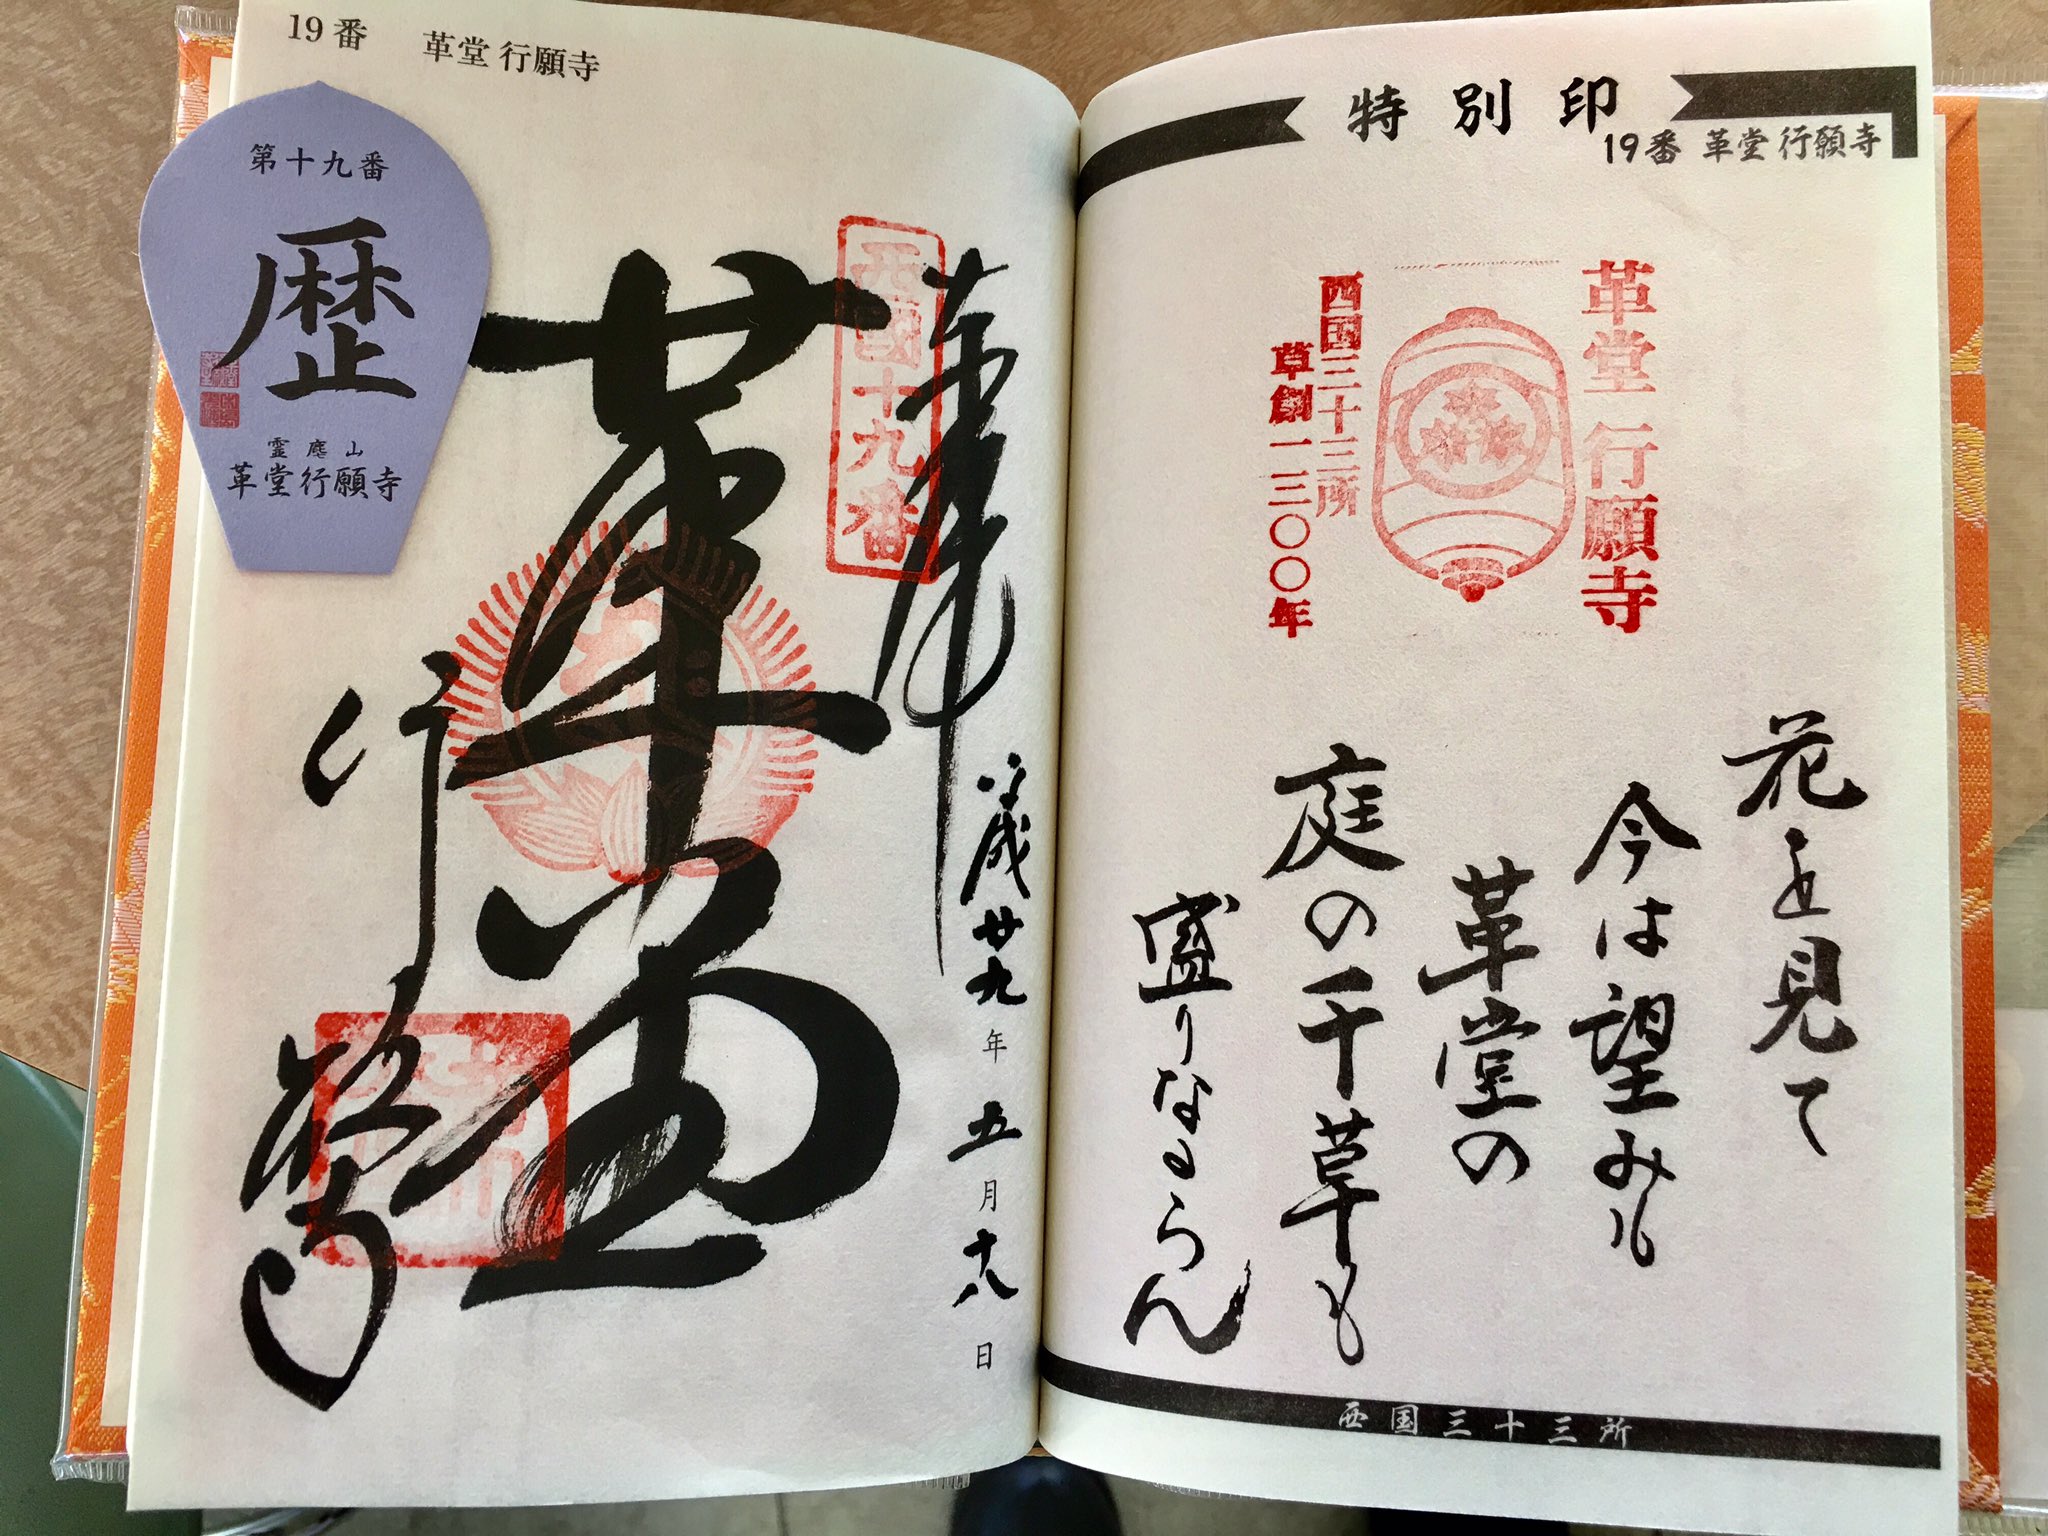 19番 革堂 行願寺
第十九番
歴
霊麀山
革堂行願寺
奉拝
西國十九番
平成廿九年五月十八日
革堂
行願寺
特別印
19番 革堂 行願寺
革堂 行願寺
西国三十三所
草創一三〇〇年
花を見て
今は望みも
革堂の
庭の千草も
盛りなるらん
西国三十三所